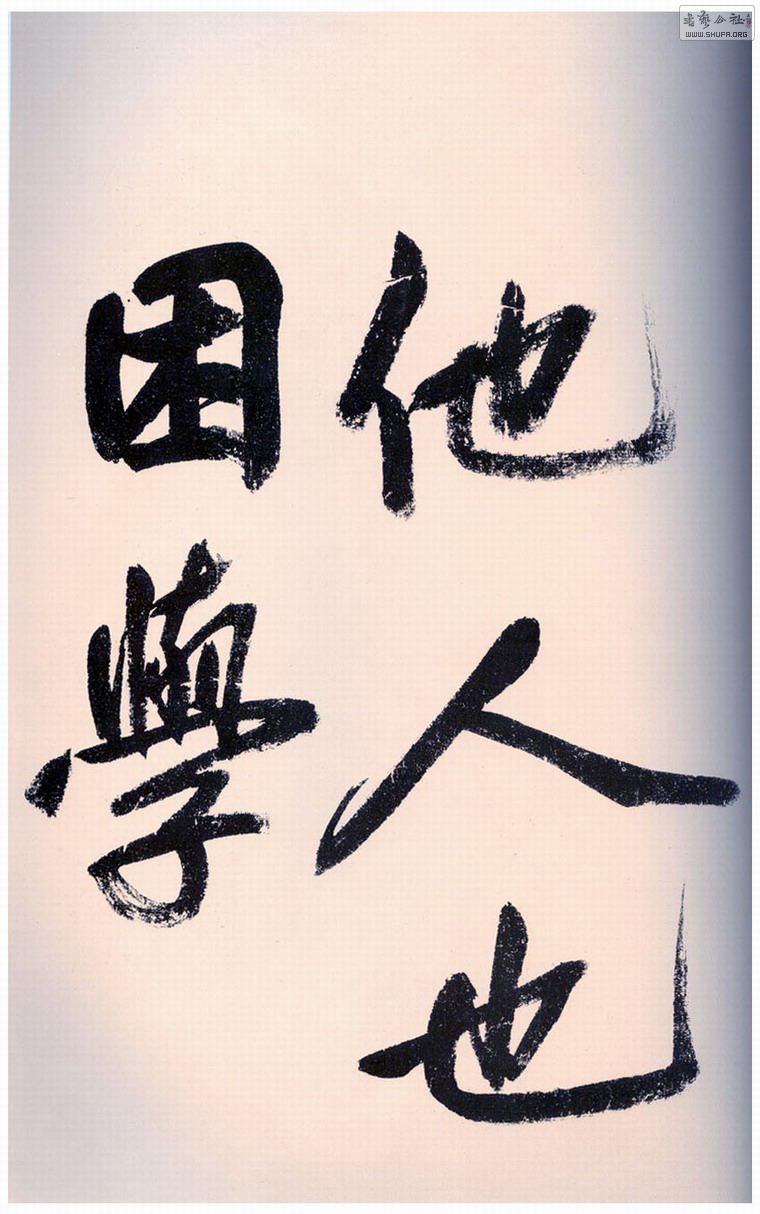 他人也
困學
书艺公社
WWW.SHUFA.ORG